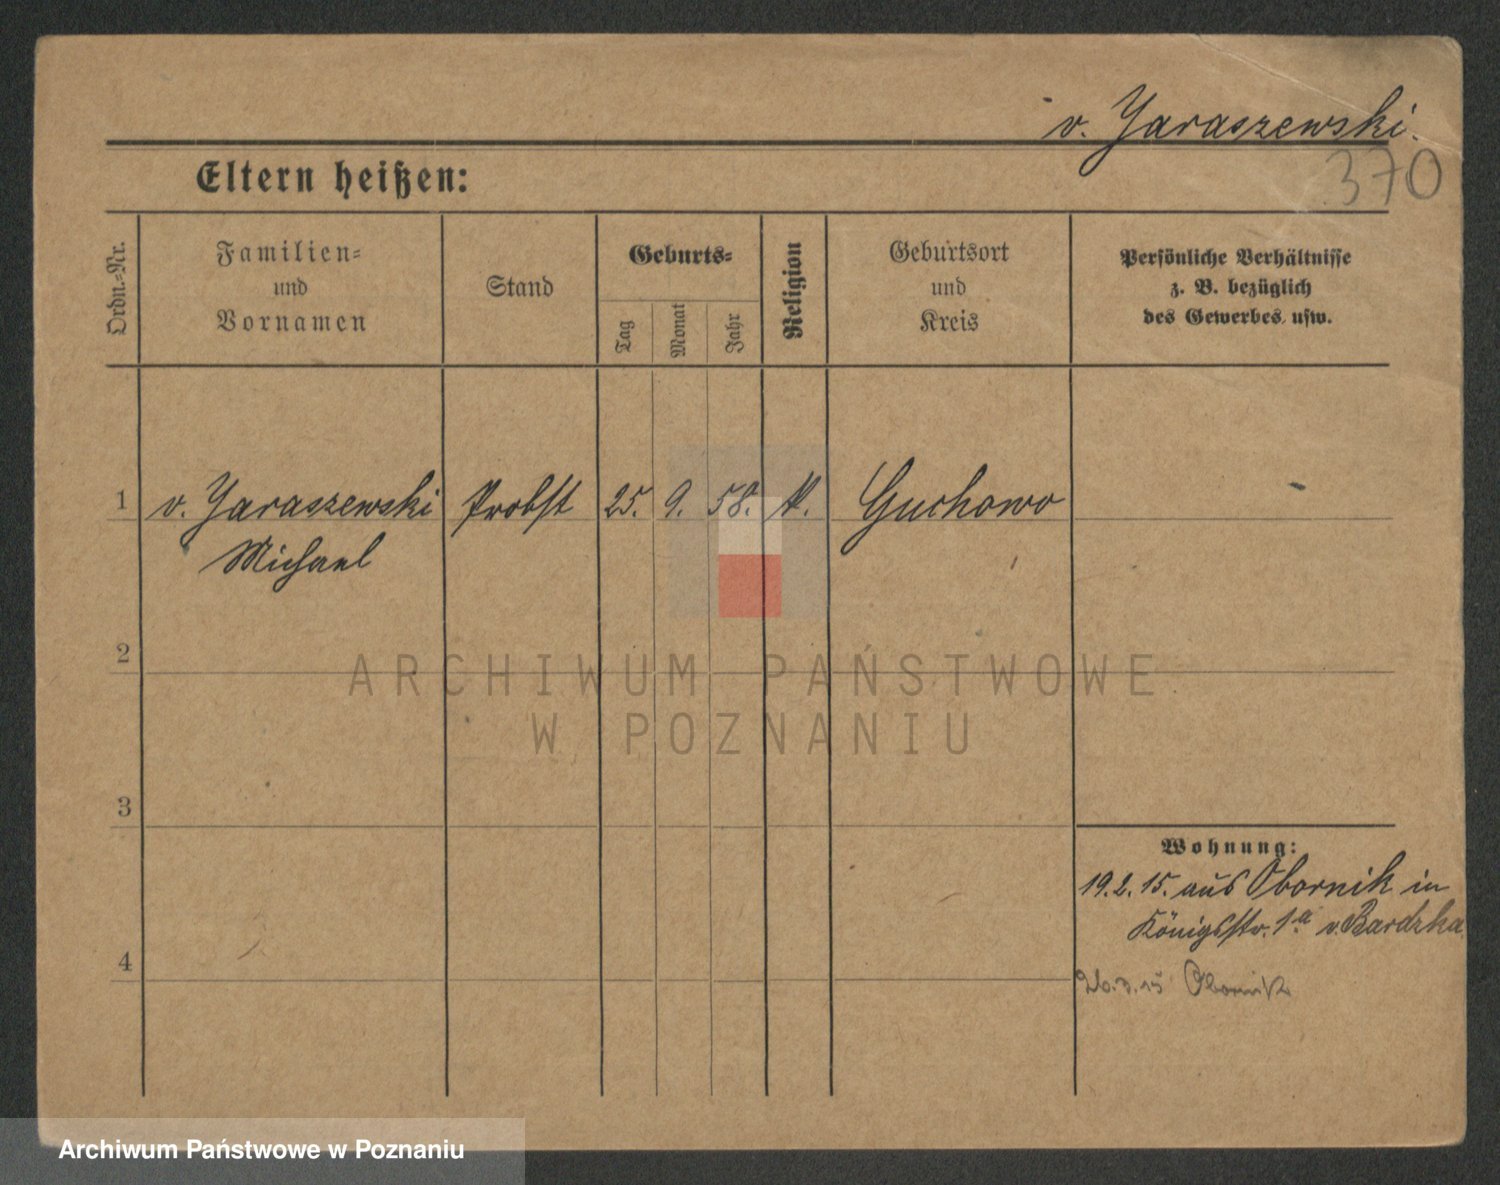 v. Jaraszewski.
370
Eltern heißen:
Ordn.-Nr.
Familien-
und
Vornamen
Stand
Geburts-
Tag
Monat
Jahr
Religion
Geburtsort
und
Kreis
Persönliche Verhältnisse
z. B. bezüglich
des Gewerbes usw.
1 v. Jaraszewski Probst 25. 9. 58. k. Guchowo
Michael
2
ARCHIWUM PAŃSTWOWE
W POZNANIU
3
Wohnung:
19.2.15. aus Obornik in
Königsstr. 1a v. Bardzka
4
15 Obornik
Archiwum Państwowe w Poznaniu